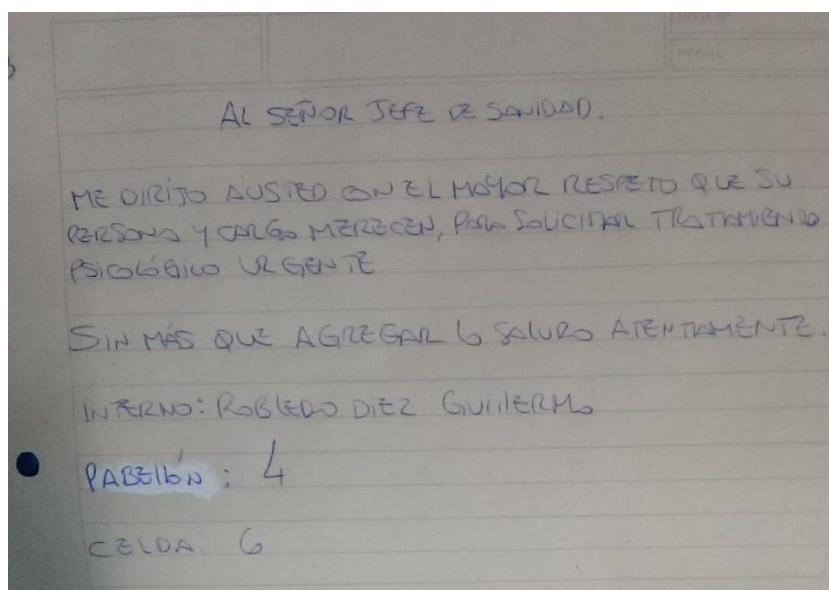 HOJA Nº
FECHA
AL SEÑOR JEFE DE SANIDAD.
ME DIRIJO AUSTED CON EL MAYOR RESPETO QUE SU
PERSONA Y CARGO MERECEN, PARA SOLICITAR TRATAMIENTO
PSICOLÓGICO URGENTE
SIN MÁS QUE AGREGAR LO SALUDO ATENTAMENTE.
INTERNO: ROBLEDO DIEZ GUILLERMO
PABELLÓN: 4
CELDA: 6